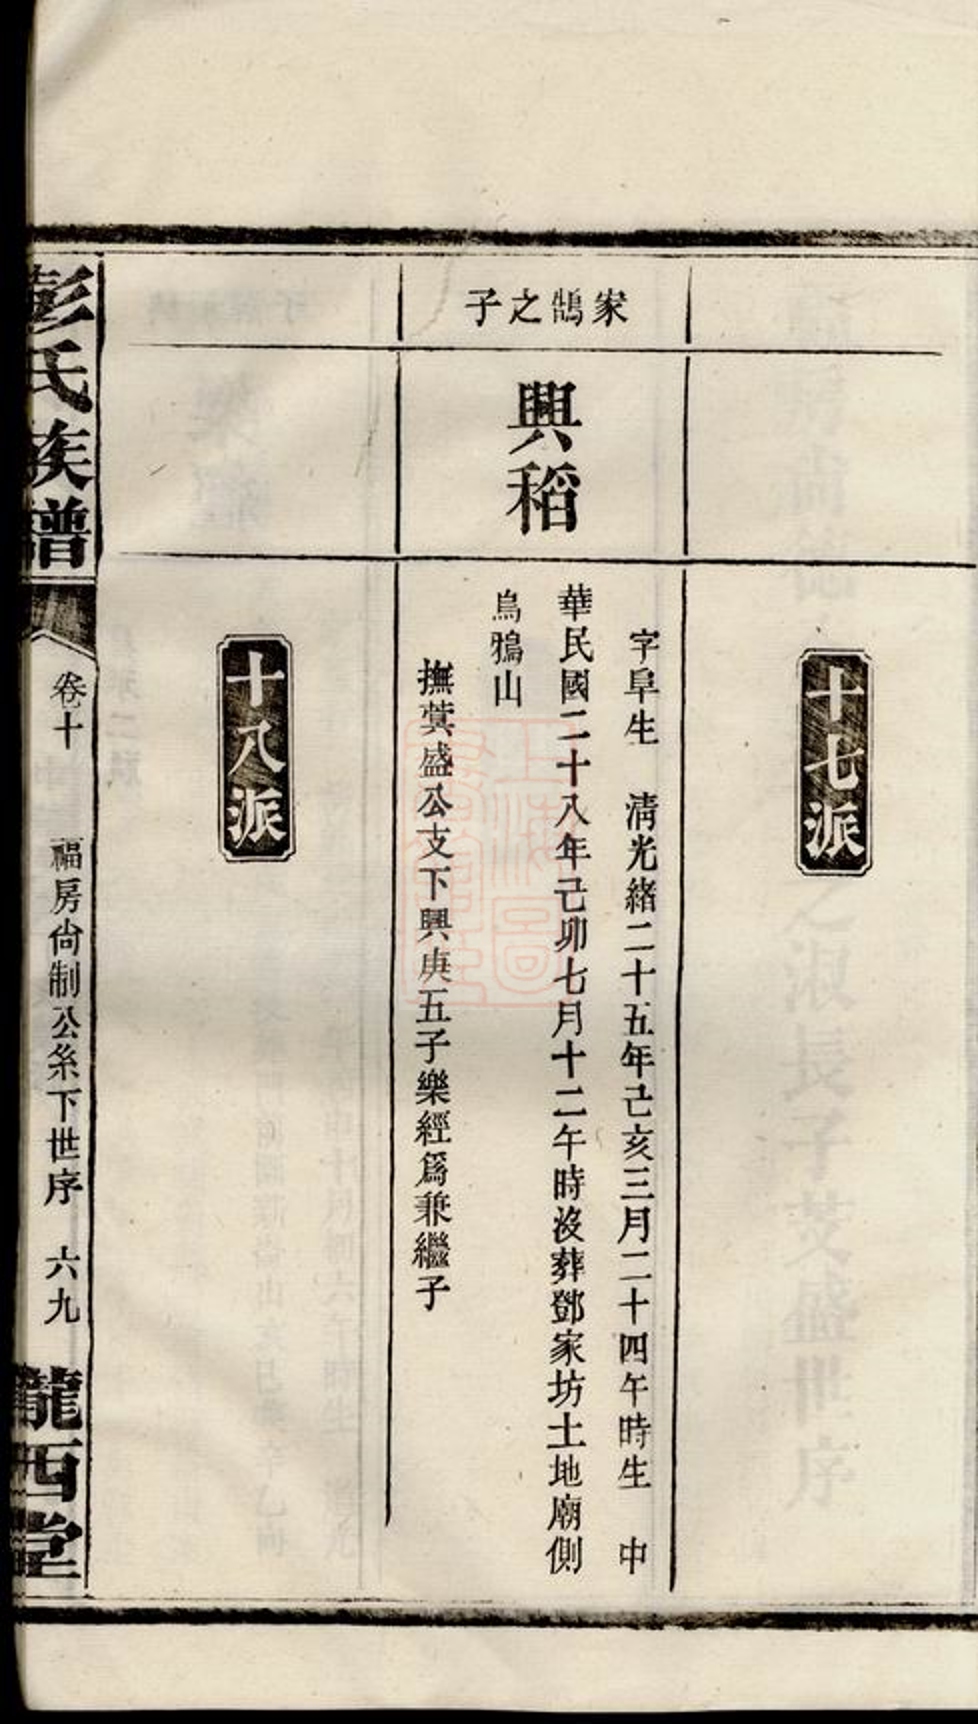 十七派
家鵠之子
興稻
字阜生　清光緒二十五年己亥三月二十四午時生　中
華民國二十八年己卯七月十二午時沒葬鄧家坊土地廟側
烏鴉山
撫蓂盛公支下興庚五子樂經爲兼繼子
十八派
彭氏族譜
卷十　福房尙制公系下世序　六九
隴西堂